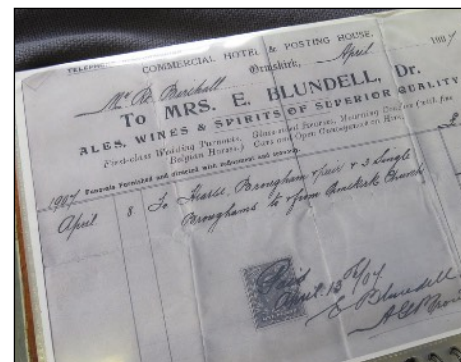 TELEPHONE
COMMERCIAL HOTEL & POSTING HOUSE,
Ormskirk, April 1907
Mr R.
To MRS. E. BLUNDELL, Dr.
ALES, WINES & SPIRITS OF SUPERIOR QUALITY
First-class Wedding Turnouts, Glass-sided Hearses, Mourning Coaches (with fine
Belgian Horses.) Cars and Open Conveyances on Hire.
Funerals Furnished and directed with and
1907
April 8 To Hearse, Brougham & pair & 3 Single
Broughams to & from Ormskirk Church
£
Paid
April 13th/07
E Blundell